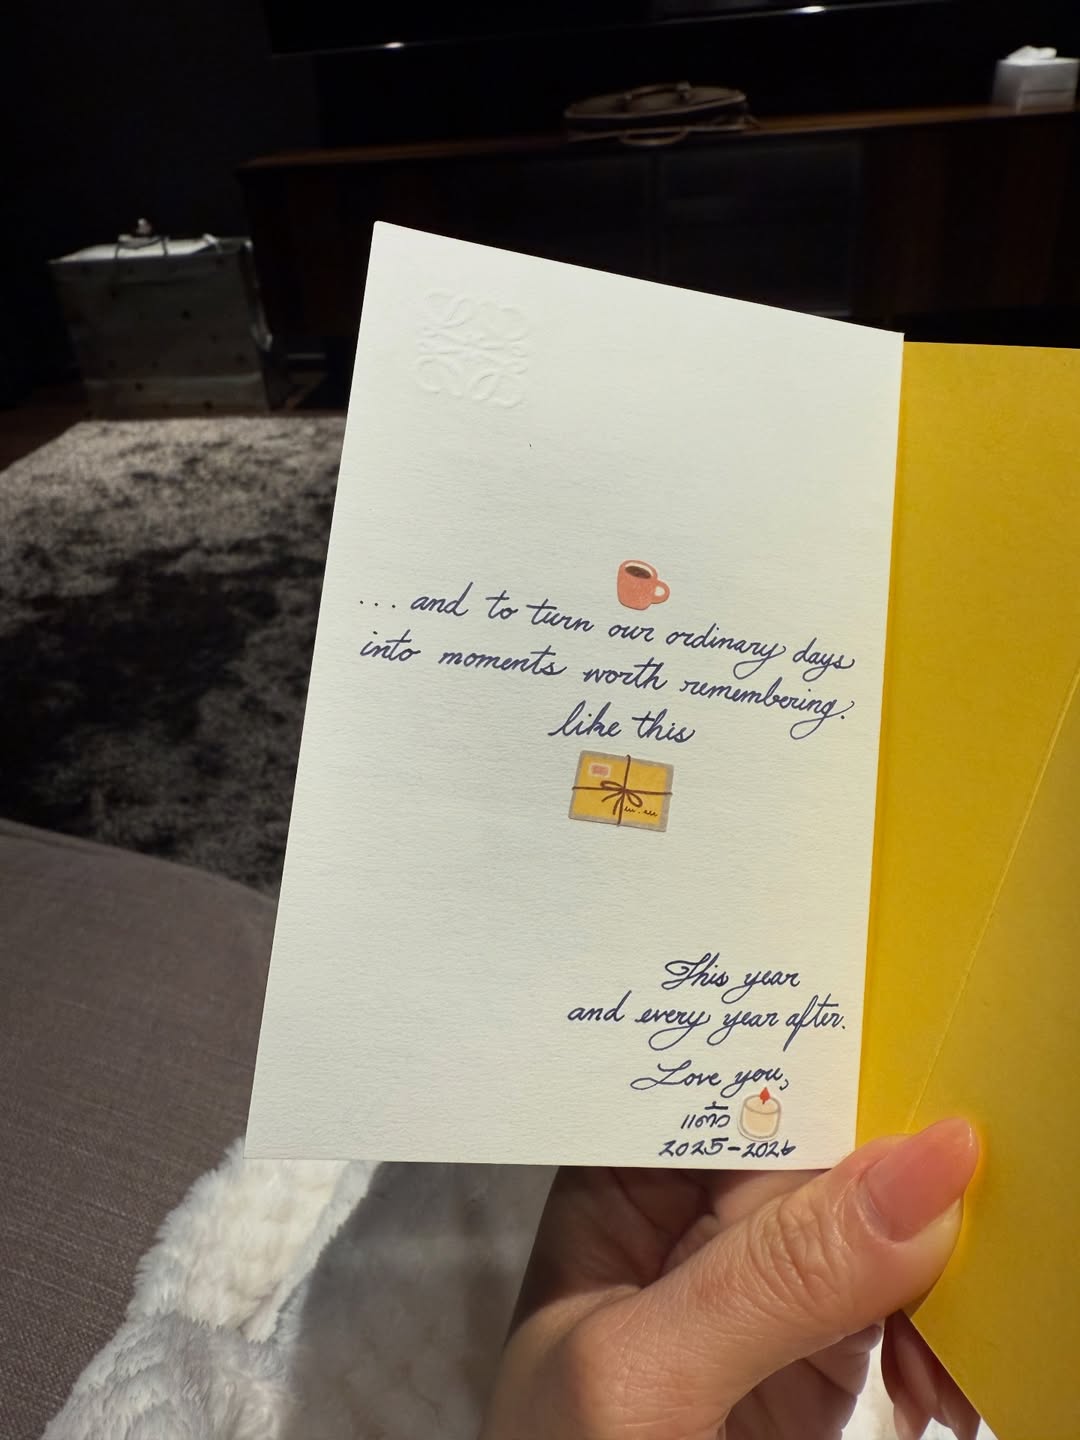 ... and to turn our ordinary days
into moments worth remembering.
like this
This year
and every year after.
Love you,
แต้ว
2025-2026